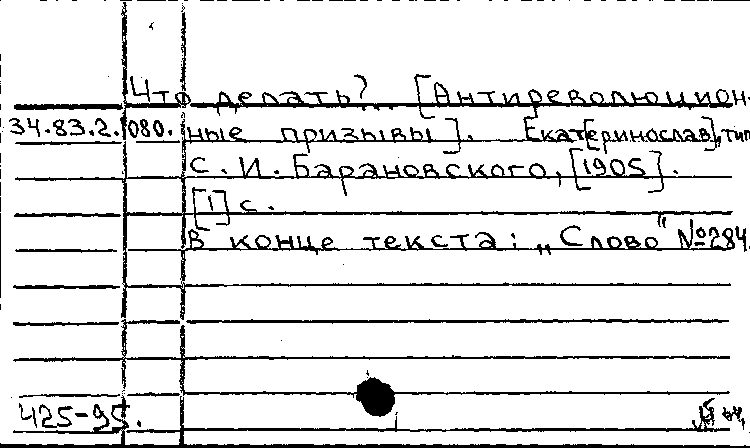 Что делать?.. [Антиреволюцион-
34.83.2.080. ные призывы]. Екат[еринослав], тип.
С. И. Барановского, [1905].
[1] с.
В конце текста: „Слово“ №284.
425-95.